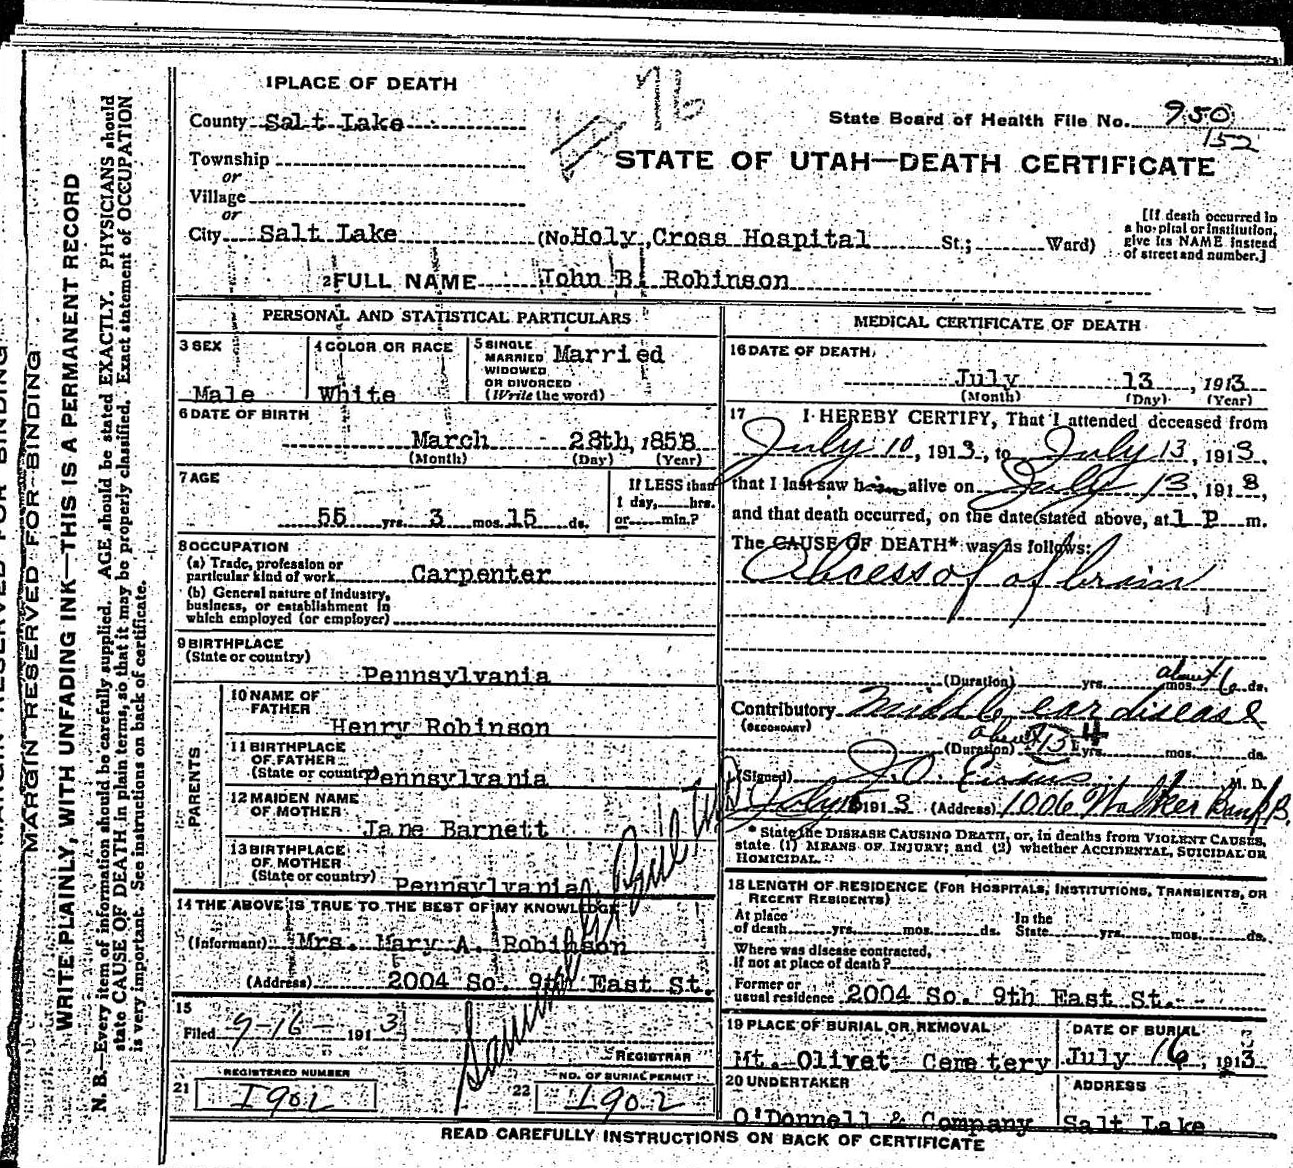 1 PLACE OF DEATH
County Salt Lake
State Board of Health File No. 950
152
Township
or
STATE OF UTAH—DEATH CERTIFICATE
Village
or
City Salt Lake (No Holy Cross Hospital St.; Ward)
[If death occurred in
a hospital or institution,
give its NAME instead
of street and number.]
2 FULL NAME John B. Robinson
PERSONAL AND STATISTICAL PARTICULARS
3 SEX
Male
4 COLOR OR RACE
White
5 SINGLE
MARRIED
WIDOWED
OR DIVORCED
(Write the word)
Married
6 DATE OF BIRTH
March 28th, 1858
(Month) (Day) (Year)
7 AGE
55 yrs. 3 mos. 15 ds.
If LESS than
1 day, hrs.
or min.?
8 OCCUPATION
(a) Trade, profession or
particular kind of work Carpenter
(b) General nature of industry,
business, or establishment in
which employed (or employer)
9 BIRTHPLACE
(State or country)
Pennsylvania
PARENTS
10 NAME OF
FATHER
Henry Robinson
11 BIRTHPLACE
OF FATHER
(State or country) Pennsylvania
12 MAIDEN NAME
OF MOTHER
Jane Barnett
13 BIRTHPLACE
OF MOTHER
(State or country) Pennsylvania
14 THE ABOVE IS TRUE TO THE BEST OF MY KNOWLEDGE
(Informant) Mrs. Mary A. Robinson
(Address) 2004 So. 9th East St.
15
Filed 7-16- 1913
REGISTRAR
REGISTERED NUMBER
21 1902
NO. OF BURIAL PERMIT
22 1902
MEDICAL CERTIFICATE OF DEATH
16 DATE OF DEATH
July 13, 1913
(Month) (Day) (Year)
17 I HEREBY CERTIFY, That I attended deceased from
July 10, 1913, to July 13, 1913,
that I last saw him alive on July 13, 1913,
and that death occurred, on the date stated above, at 1 P m.
The CAUSE OF DEATH* was as follows:
Abcess of of brain
(Duration) yrs. mos. about 6 ds.
Contributory Middle ear disease
(SECONDARY)
(Duration) about 13 4 yrs. mos. ds.
(Signed) J.O. Evans M. D.
July 1913 (Address) 1006 Walker Bank B.
* State the DISEASE CAUSING DEATH, or, in deaths from VIOLENT CAUSES,
state (1) MEANS OF INJURY; and (2) whether ACCIDENTAL, SUICIDAL OR
HOMICIDAL.
18 LENGTH OF RESIDENCE (FOR HOSPITALS, INSTITUTIONS, TRANSIENTS, OR
RECENT RESIDENTS)
At place
of death yrs. mos. ds.
In the
State yrs. mos. ds.
Where was disease contracted,
if not at place of death?
Former or
usual residence 2004 So. 9th East St.
19 PLACE OF BURIAL OR REMOVAL
Mt. Olivet Cemetery
DATE OF BURIAL
July 16, 1913
20 UNDERTAKER
O'Donnell & Company
ADDRESS
Salt Lake
READ CAREFULLY INSTRUCTIONS ON BACK OF CERTIFICATE
MARGIN RESERVED FOR BINDING
WRITE PLAINLY, WITH UNFADING INK—THIS IS A PERMANENT RECORD
N. B.—Every item of information should be carefully supplied. AGE should be stated EXACTLY. PHYSICIANS should
state CAUSE OF DEATH in plain terms, so that it may be properly classified. Exact statement of OCCUPATION
is very important. See instructions on back of certificate.